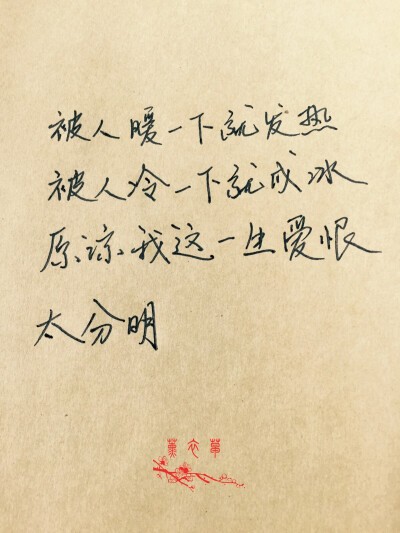 被人暖一下就发热
被人冷一下就成冰
原谅我这一生爱恨
太分明
薰衣草